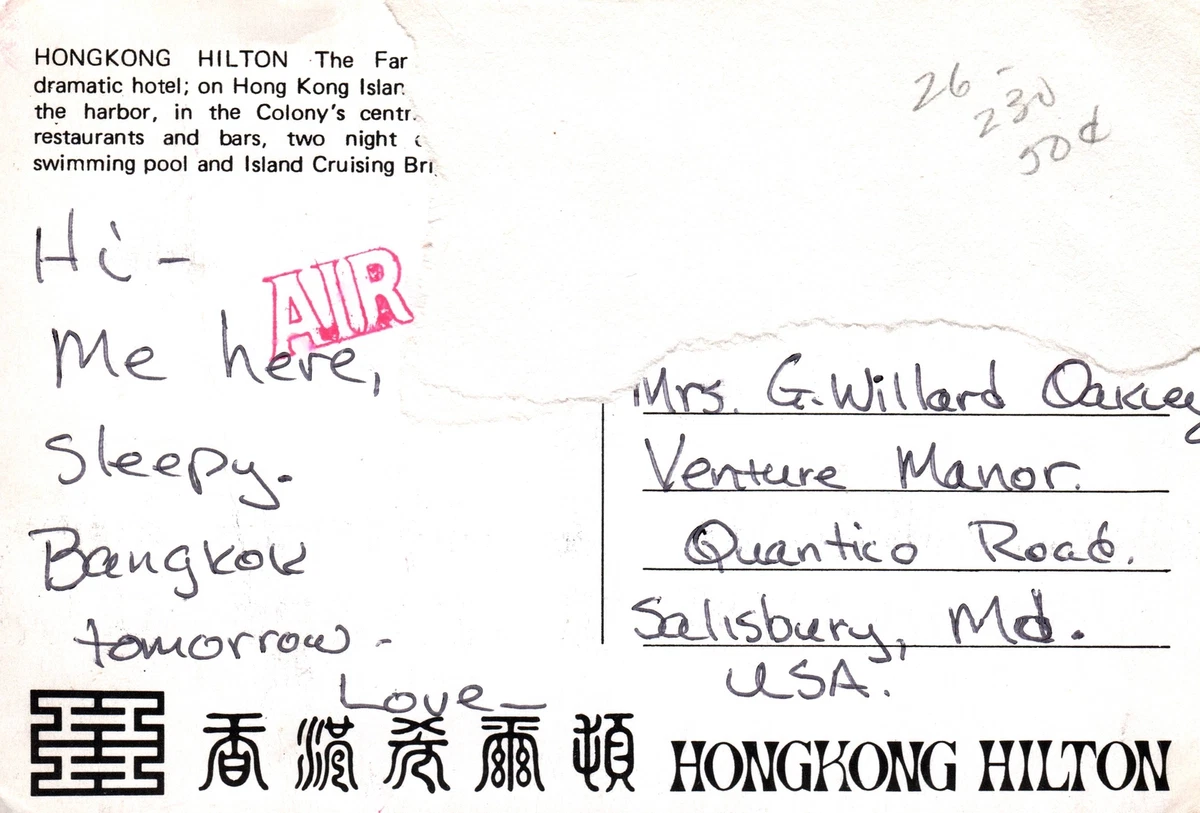 HONGKONG HILTON The Far
dramatic hotel; on Hong Kong Islan
the harbor, in the Colony's centr
restaurants and bars, two night
swimming pool and Island Cruising Bri
26-
230
50¢
Hi-
AIR
Me here,
Sleepy.
Bangkok
tomorrow-
Love-
Mrs. G. Willard Oakley
Venture Manor.
Quantico Road.
Salisbury, Md.
USA.
香港希爾頓 HONGKONG HILTON